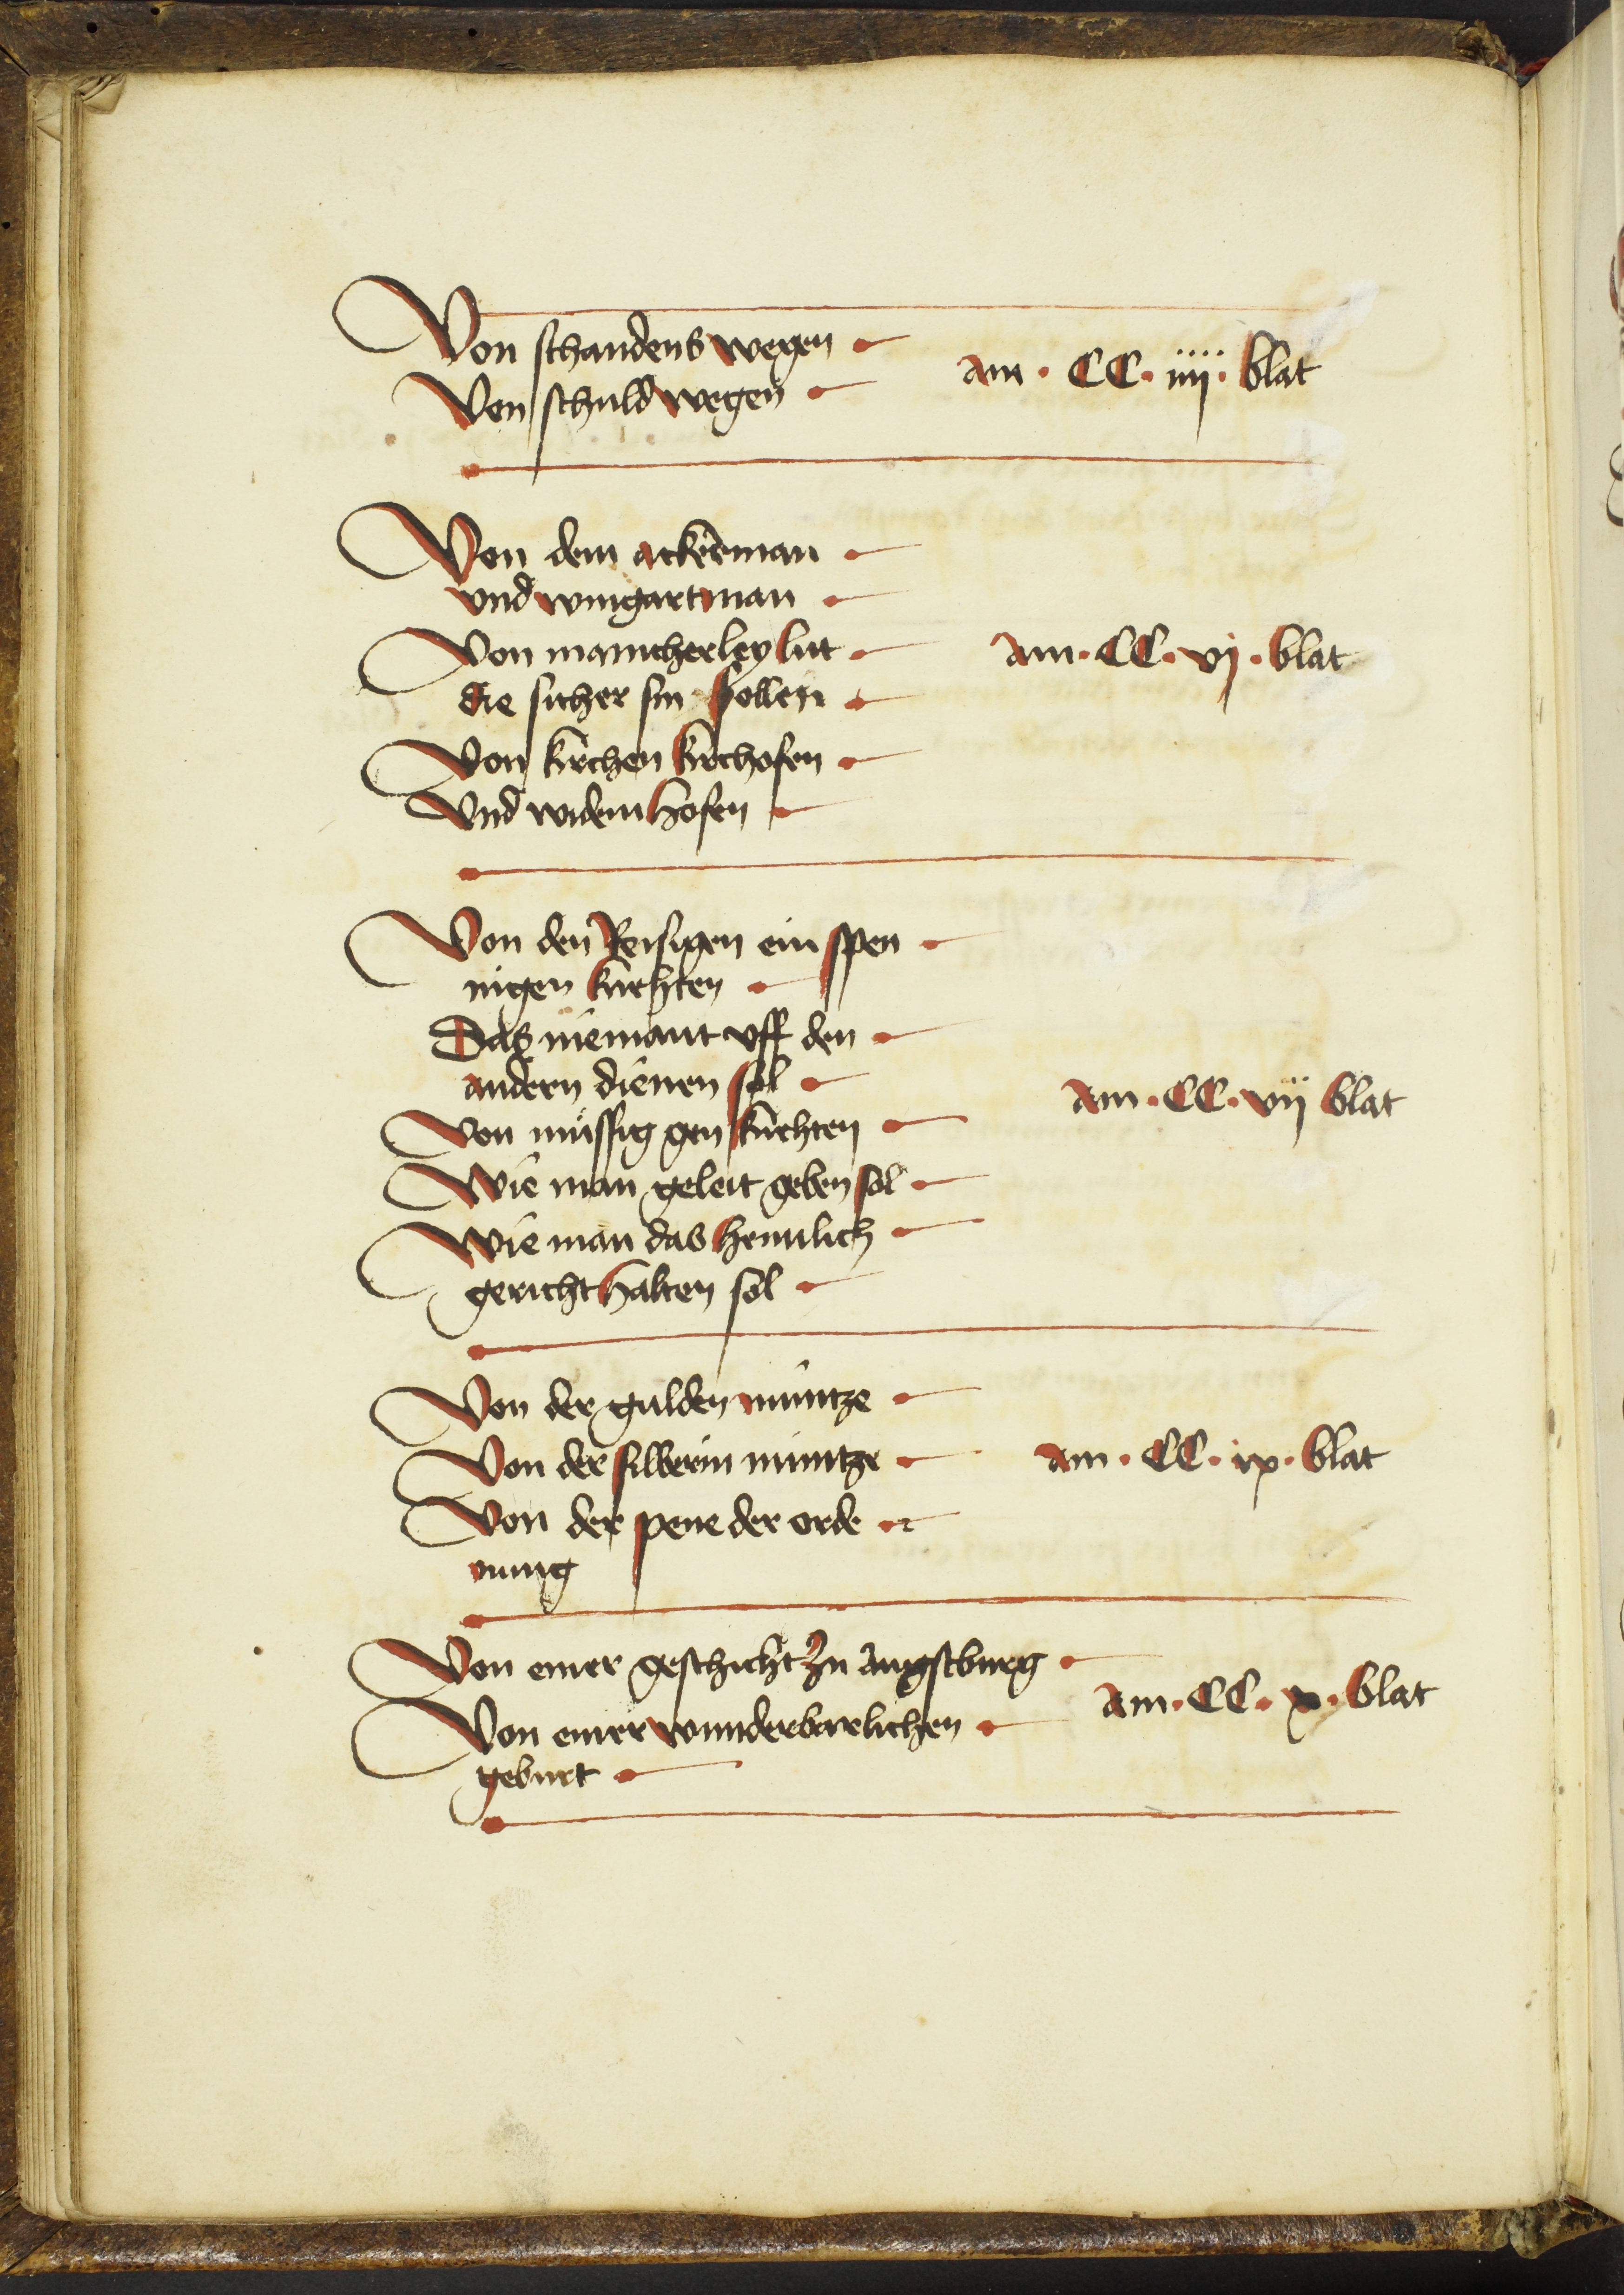 Von schandens wegen
Von schuld wegen
am · CC · iiij · blat
Von dem ackerman
vnd wingartman
Von manicherley lüt
die sicher sin sollen
am · CC · vj · blat
Von kirchen kirchofen
Vnd widem hofen
Von den Reisigen ein spen
nigen knehten
Das niemant vff den
andern dienen sol
am · CC · vij blat
Von müssig gen knehten
Wie man geleit geben sol
Wie man das heimlich
gericht halten sol
Von der gulden müntze
Von der silberin müntze
am · CC · ix · blat
Von der pene der orde
nung
Von einer geschicht zu augstburg
am · CC · x · blat
Von einer wunderbarlichen
geburt